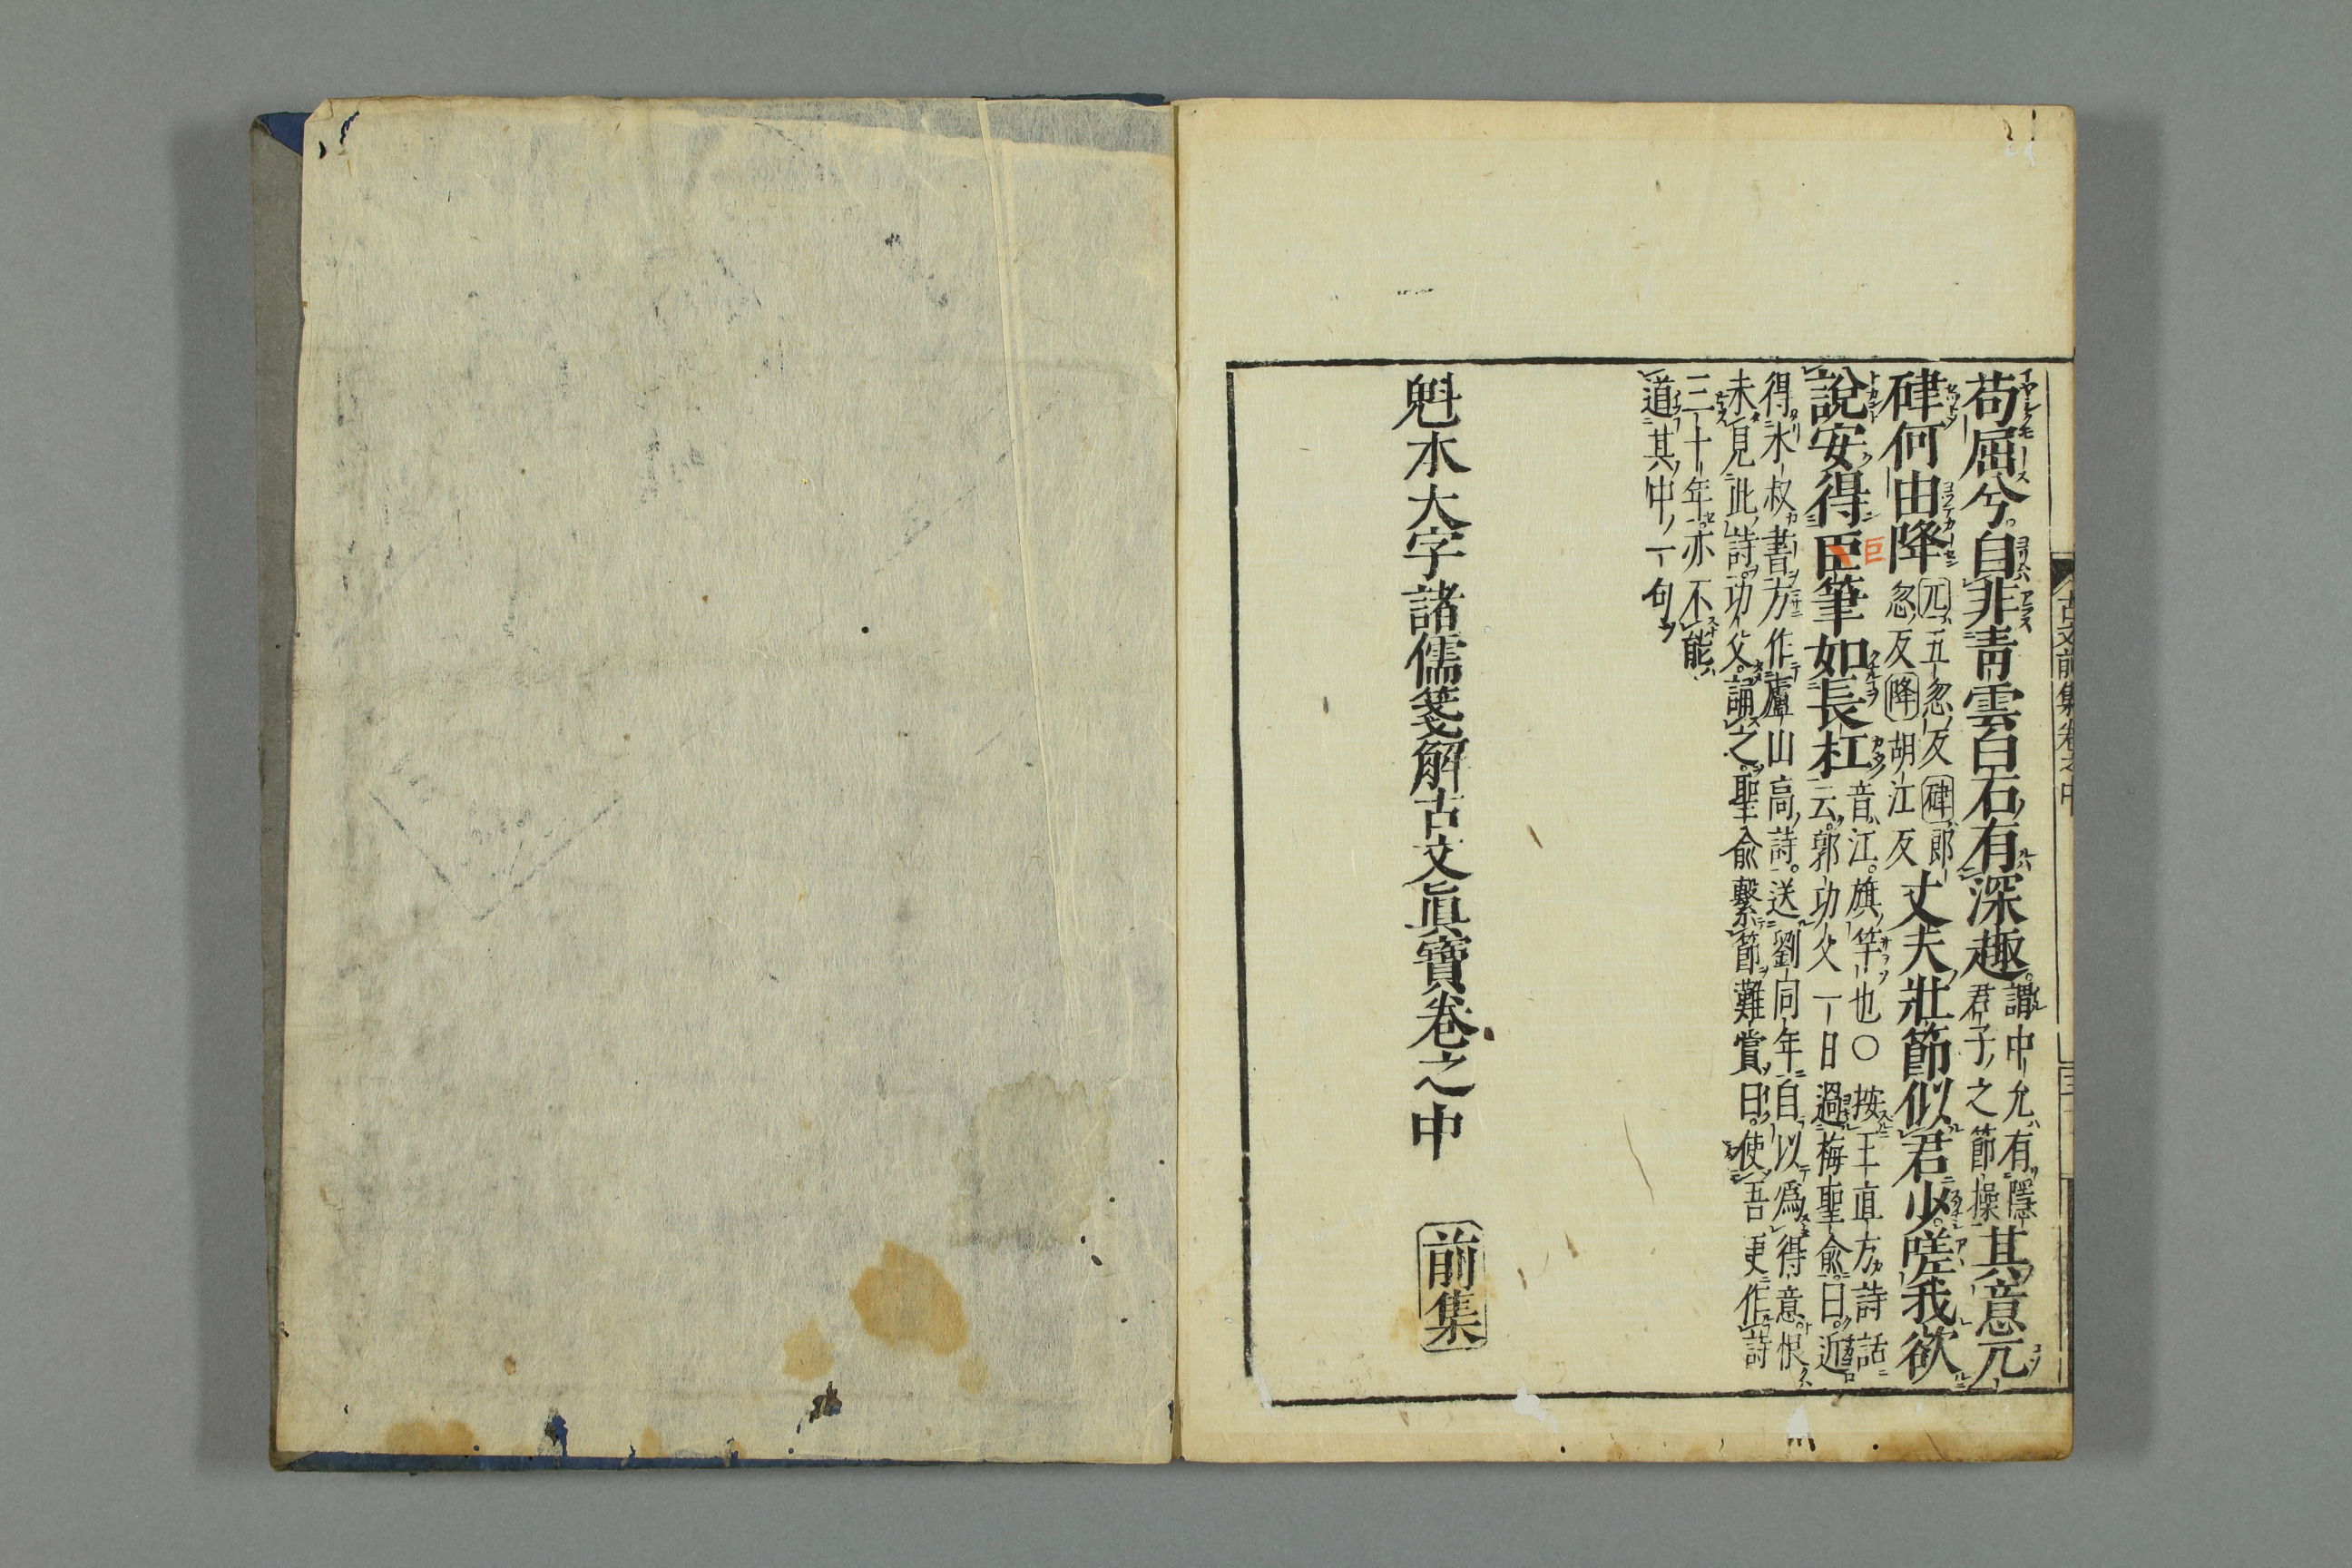 古文前集卷之中
苟屈兮。自非青雲白石有深趣。謂中允有隱
君子之節操
其意兀
硉何由降兀五忽反硉郎
忽反降胡江反
丈夫壯節似君少。嗟我欲
說安得臣筆如長杠音江。旗竿也〇按王直方詩話
巨
云。郭功父一日過梅聖俞。曰。近
得永叔書方作廬山高詩。送劉同年自以爲得意。恨
未見此詩。功父。誦之。聖俞繫節難賞。曰。使吾更作詩
三十年。亦不能
道其中一句
魁本大字諸儒箋解古文眞寶卷之中　前集